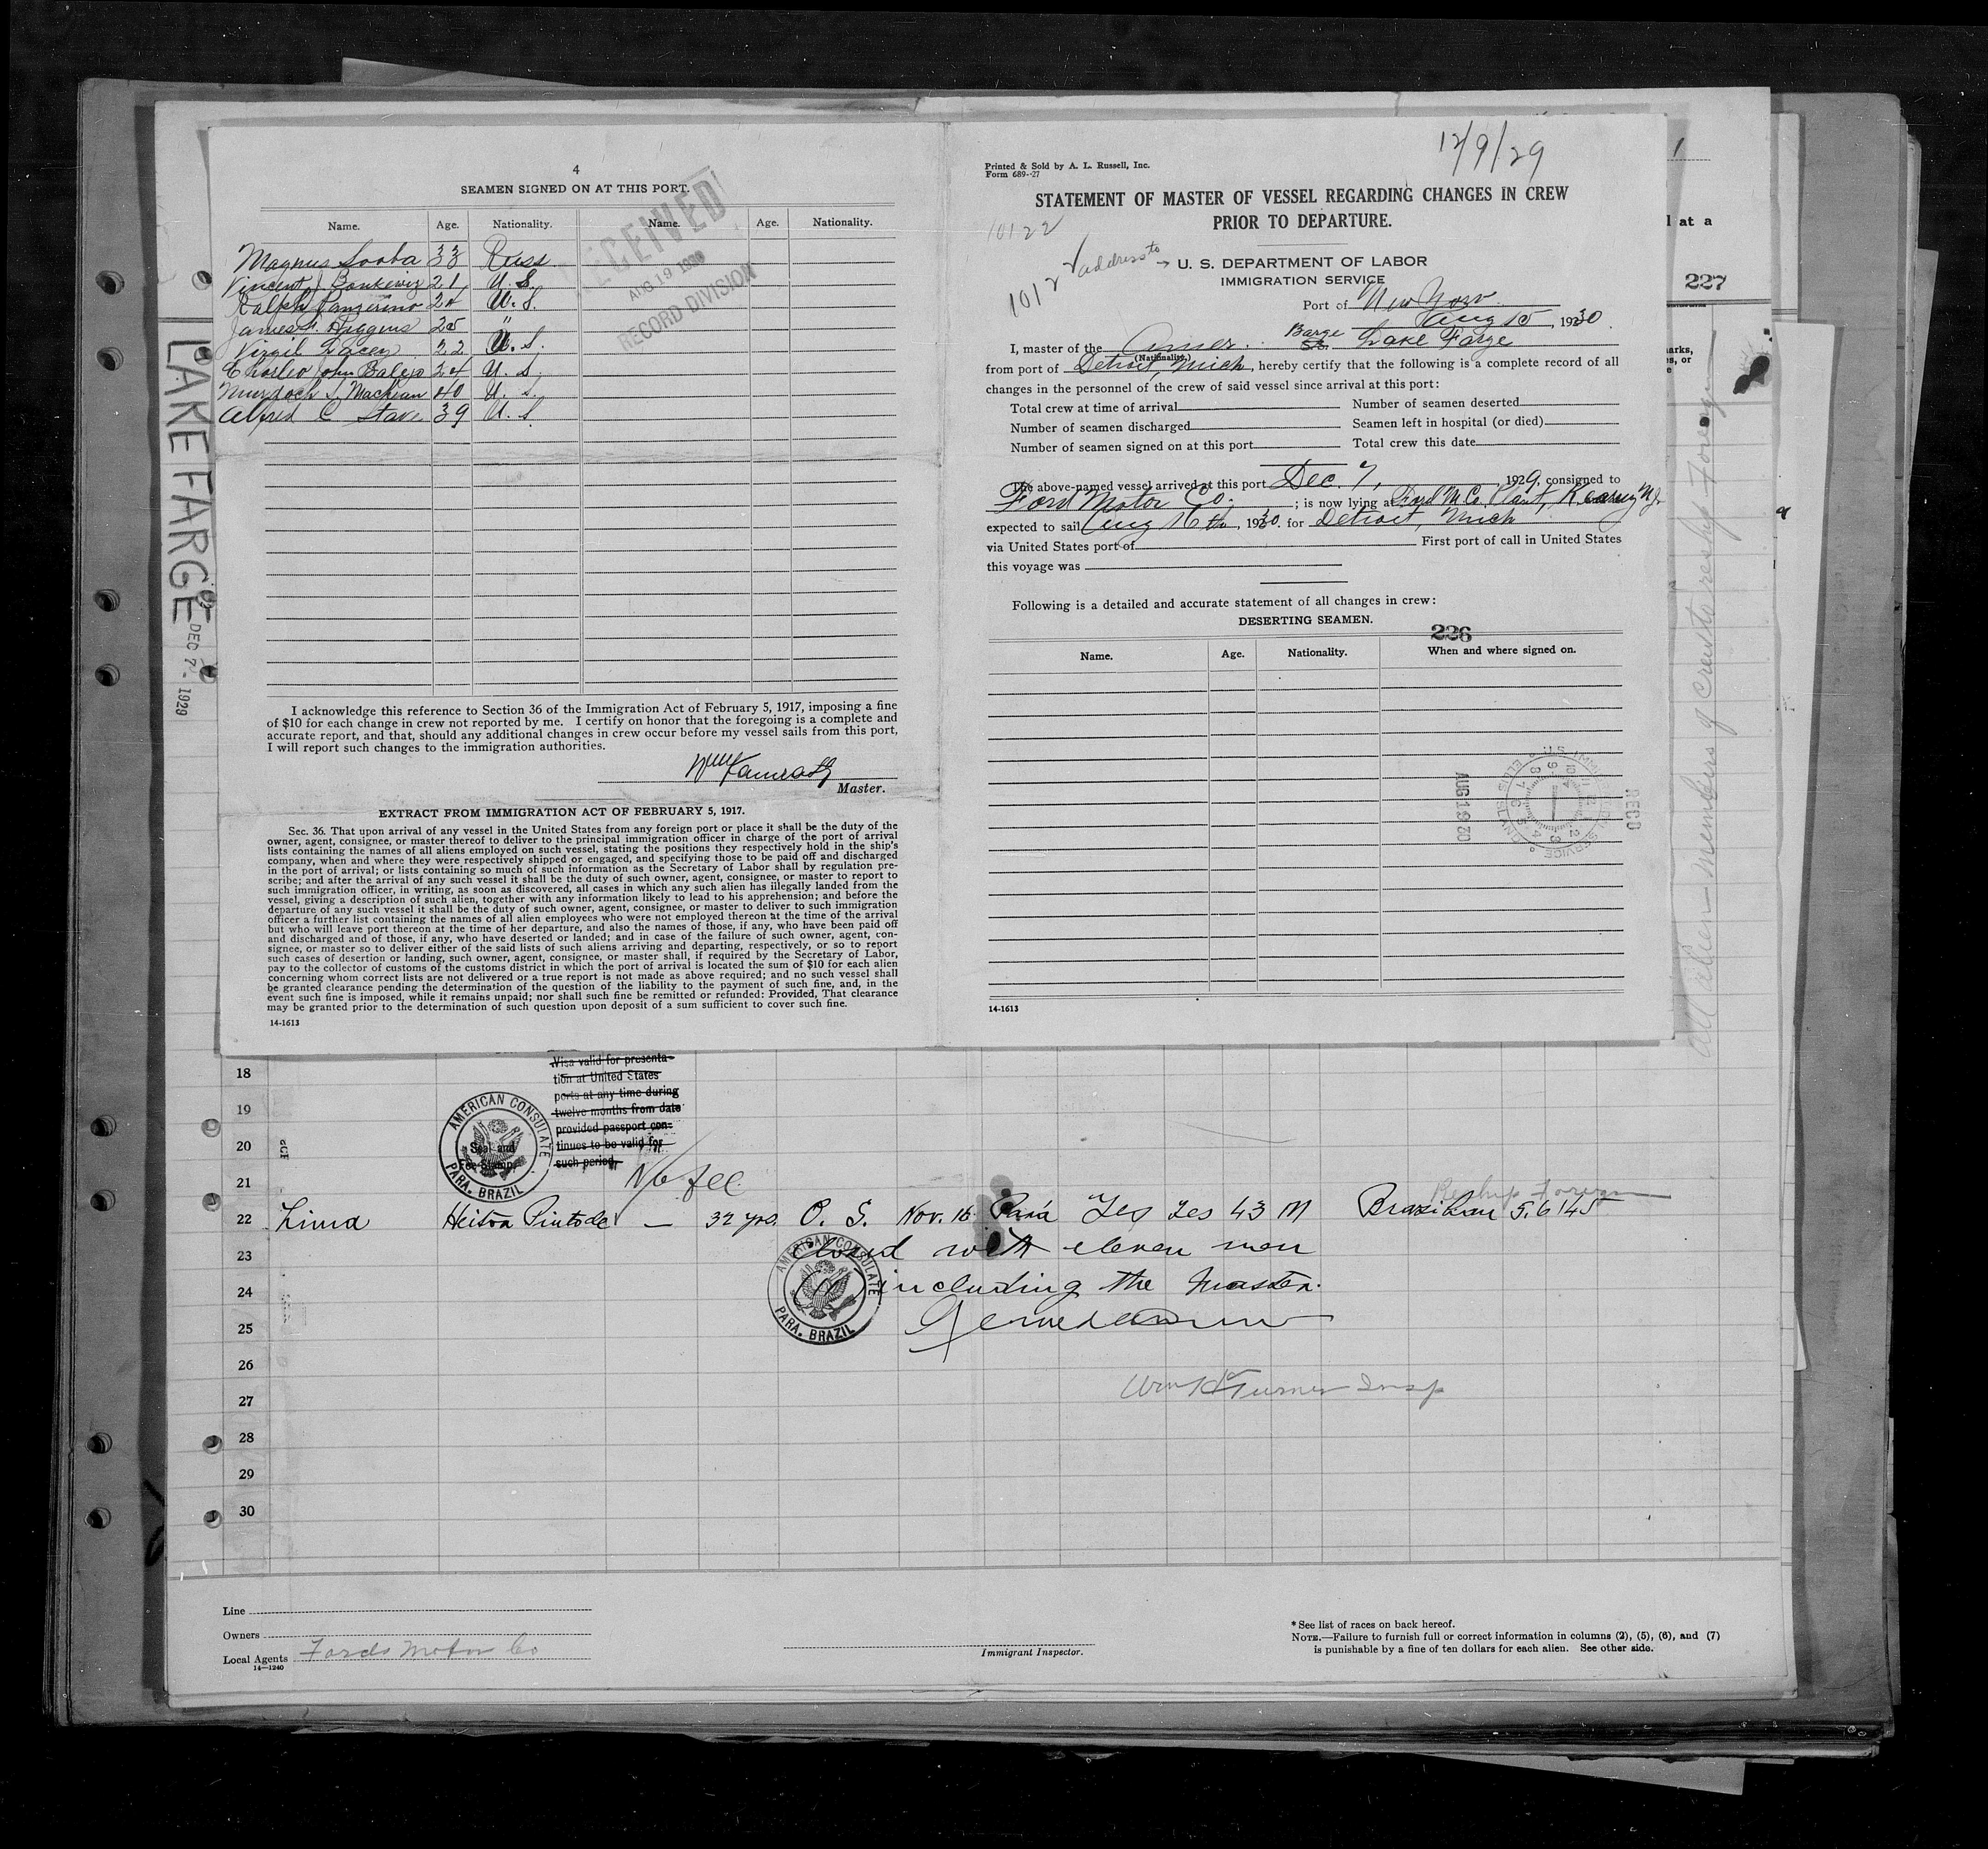 4
SEAMEN SIGNED ON AT THIS PORT.
Name. Age. Nationality. Name. Age. Nationality.
Magnus Sooba 33 Russ.
Vincent J Bonkewiz 21 U.S.
Ralph Panzerino 24 U.S.
James F. Higgins 25 "
Virgil Lacey 22 U.S.
Charles John Baleys 24 U.S.
Murdoch J. MacLean 40 U.S.
Alfred C Stave 39 U.S.
RECEIVED
AUG 19 1930
RECORD DIVISION
I acknowledge this reference to Section 36 of the Immigration Act of February 5, 1917, imposing a fine
of $10 for each change in crew not reported by me. I certify on honor that the foregoing is a complete and
accurate report, and that, should any additional changes in crew occur before my vessel sails from this port,
I will report such changes to the immigration authorities.
Wm Kamrath
Master.
EXTRACT FROM IMMIGRATION ACT OF FEBRUARY 5, 1917.
Sec. 36. That upon arrival of any vessel in the United States from any foreign port or place it shall be the duty of the
owner, agent, consignee, or master thereof to deliver to the principal immigration officer in charge of the port of arrival
lists containing the names of all aliens employed on such vessel, stating the positions they respectively hold in the ship's
company, when and where they were respectively shipped or engaged, and specifying those to be paid off and discharged
in the port of arrival; or lists containing so much of such information as the Secretary of Labor shall by regulation pre-
scribe; and after the arrival of any such vessel it shall be the duty of such owner, agent, consignee, or master to report to
such immigration officer, in writing, as soon as discovered, all cases in which any such alien has illegally landed from the
vessel, giving a description of such alien, together with any information likely to lead to his apprehension; and before the
departure of any such vessel it shall be the duty of such owner, agent, consignee, or master to deliver to such immigration
officer a further list containing the names of all alien employees who were not employed thereon at the time of the arrival
but who will leave port thereon at the time of her departure, and also the names of those, if any, who have been paid off
and discharged and of those, if any, who have deserted or landed; and in case of the failure of such owner, agent, con-
signee, or master so to deliver either of the said lists of such aliens arriving and departing, respectively, or so to report
such cases of desertion or landing, such owner, agent, consignee, or master shall, if required by the Secretary of Labor,
pay to the collector of customs of the customs district in which the port of arrival is located the sum of $10 for each alien
concerning whom correct lists are not delivered or a true report is not made as above required; and no such vessel shall
be granted clearance pending the determination of the question of the liability to the payment of such fine, and, in the
event such fine is imposed, while it remains unpaid; nor shall such fine be remitted or refunded: Provided, That clearance
may be granted prior to the determination of such question upon deposit of a sum sufficient to cover such fine.
14-1613
LAKE FARGE
DEC 7 - 1929
12/9/29
Printed & Sold by A. L. Russell, Inc.
Form 689-27
STATEMENT OF MASTER OF VESSEL REGARDING CHANGES IN CREW
PRIOR TO DEPARTURE.
10122
1012
address to
U. S. DEPARTMENT OF LABOR
IMMIGRATION SERVICE
Port of New York
Aug 15, 1930.
I, master of the Amer. Barge SS. Lake Farge
(Nationality.)
from port of Detroit, Mich, hereby certify that the following is a complete record of all
changes in the personnel of the crew of said vessel since arrival at this port:
Total crew at time of arrival Number of seamen deserted
Number of discharged Seamen left in hospital (or died)
Number of seamen signed on at this port Total crew this date
The above-named vessel arrived at this port Dec. 7, 1929, consigned to
Ford Motor Co.; is now lying at Ford M. Co. Plant, Kearny N.J.
expected to sail Aug 16th, 1930. for Detroit, Mich
via United States port of First port of call in United States
this voyage was
Following is a detailed and accurate statement of all changes in crew:
DESERTING SEAMEN.
226
Name. Age. Nationality. When and where signed on.
REC'D
AUG 19 30
14-1613
l at a
227
arks,
es, or
e
all alien members of crew to reship foreign
18
19
20
21
22
23
24
25
26
27
28
29
30
Visa valid for presenta-
tion at United States
ports at any time during
twelve months from date
provided passport con-
tinues to be valid for
such period.
AMERICAN CONSULATE
Seal and
Fee Stamp
PARA. BRAZIL
No fee
Reship Foreign
Lima Heitor Pinto de — 32 yrs. O. S. Nov. 16 Pará Yes Yes 43 M Brazilian 5.6 145
Closed with eleven men
including the Master.
AMERICAN CONSULATE
PARA. BRAZIL
Wm K Turner Insp
Line
Owners
Local Agents Fords Motor Co
14—1240
Immigrant Inspector.
* See list of races on back hereof.
NOTE.—Failure to furnish full or correct information in columns (2), (5), (6), and (7)
is punishable by a fine of ten dollars for each alien. See other side.